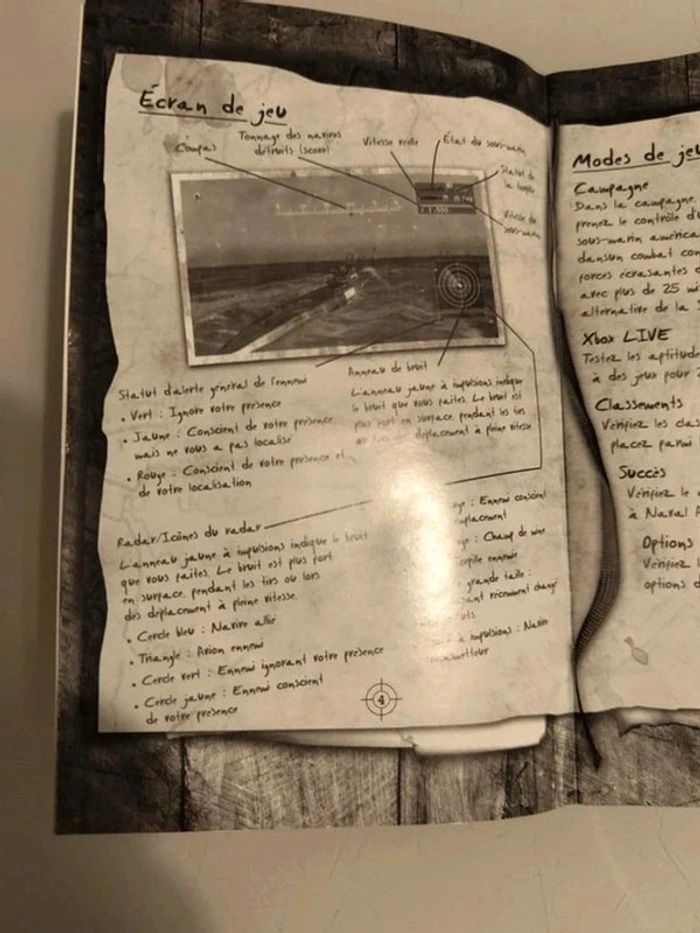 Écran de jeu
Compas
Tonnage des navires
détruits (score)
Vitesse réelle
État du sous-marin
Statut de
la
Vitesse du
sous-marin
Statut d'alerte général de l'ennemi
• Vert : Ignore votre présence
• Jaune : Conscient de votre présence
mais ne vous a pas localisé
• Rouge : Conscient de votre présence et
de votre localisation
Anneau de bruit
L'anneau jaune à impulsions indique
le bruit que vous faites. Le bruit est
plus fort en surface, pendant les tirs
ou lors déplacement à pleine vitesse
Radar/Icônes du radar
L'anneau jaune à impulsions indique le bruit
que vous faites. Le bruit est plus fort
en surface, pendant les tirs ou lors
des déplacement à pleine vitesse.
• Cercle bleu : Navire allié
• Triangle : Avion ennemi
• Cercle vert : Ennemi ignorant votre présence
• Cercle jaune : Ennemi conscient
de votre présence
: Ennemi conscient
: Champ de mine
ennemie
grande taille :
récemment changé
à impulsions : Navire
4
Modes de jeu
Campagne
Dans la campagne
prenez le contrôle d'
sous-marin américa
dansun combat con
forces écrasantes d
avec plus de 25 mi
alternative de la
Xbox LIVE
Testez les aptitude
à des jeux pour 2
Classements
Vérifiez les clas
placez parmi
Succès
Vérifiez le
à Naval A
Options
Vérifiez l
options d